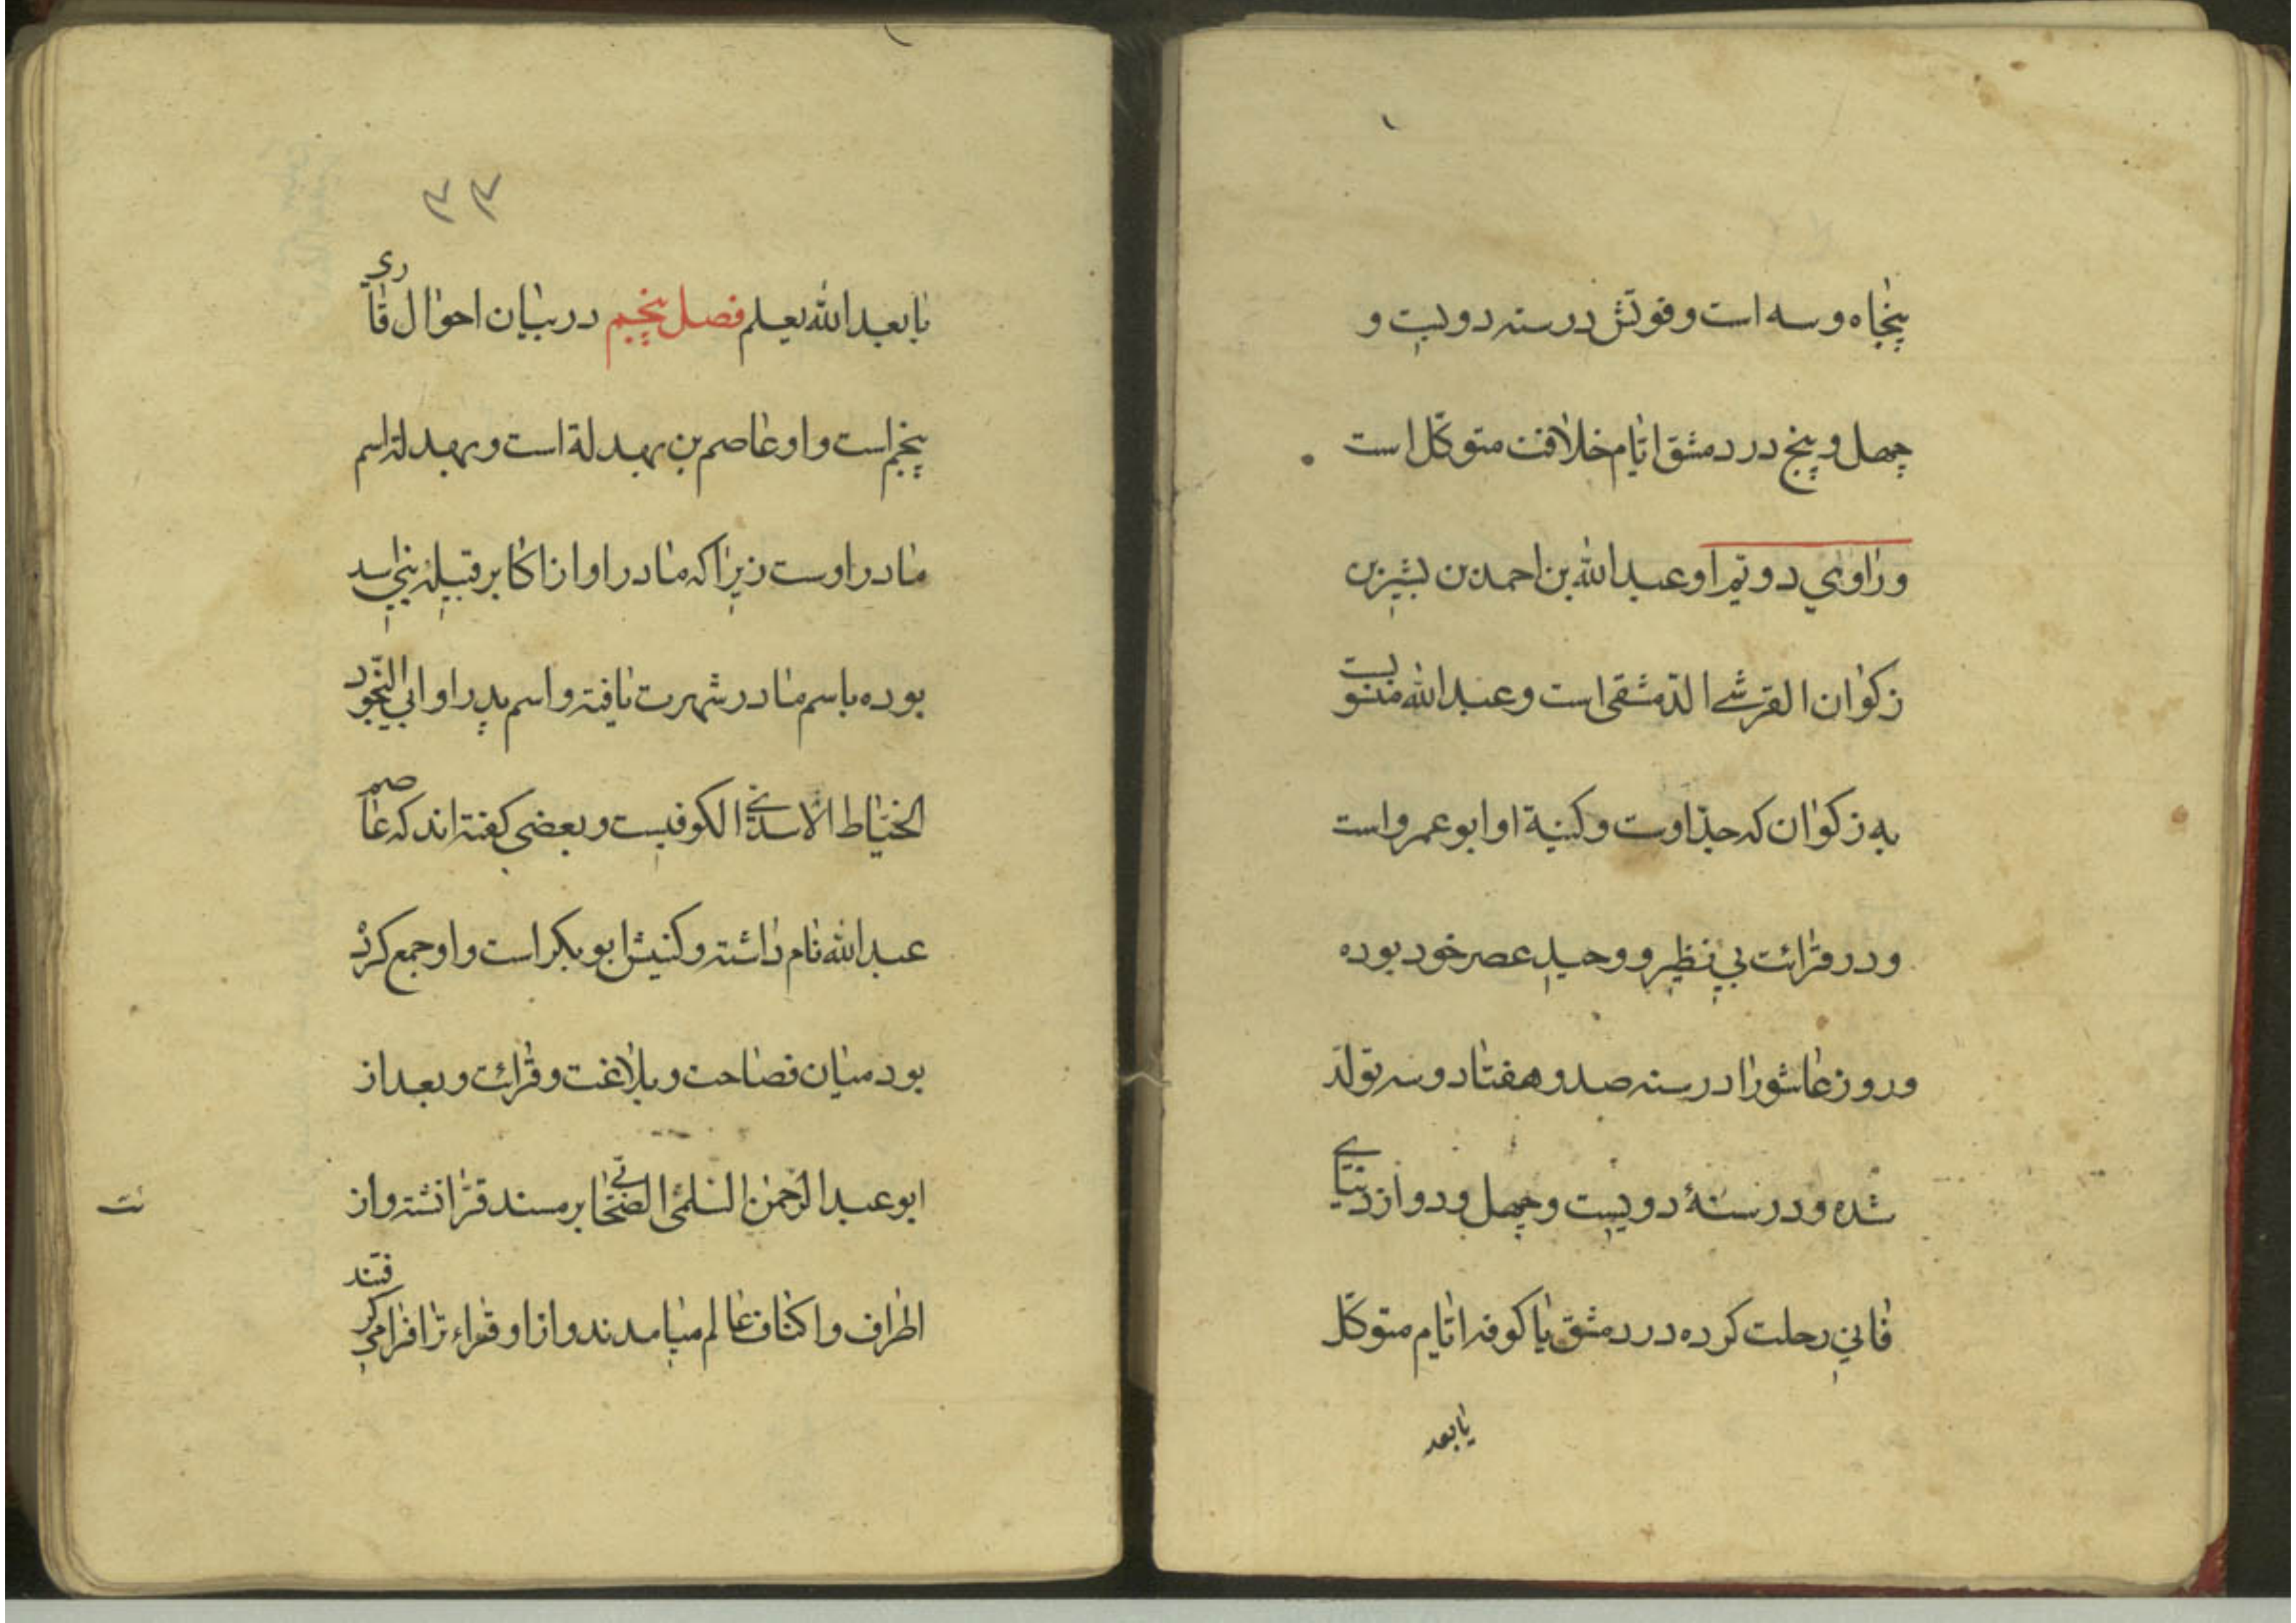 پنجاه و سه است و فوتش در سنه دویست و
چهل و پنج در دمشق ایام خلافت متوکّل است
و راوی دویّم او عبد الله بن احمد بن بشیر بن
زکوان القرشی الدّمشقی است و عبد الله منسوبست
به زکوان که جدّ اوست و کنیة او ابو عمرو است
و در قرائت بی نظیر و وحید عصر خود بوده
و روز عاشورا در سنه صد و هفتاد و سه تولّد
شده و در سنهٔ دویست و چهل و دو از دنیای
فانی رحلت کرده در دمشق یا کوفه ایام متوکّل
یا بعد
۳۳
یا بعد الله یعلم فصل پنجم در بیان احوال قاری
پنجم است و او عاصم بن بهدلة است و بهدله اسم
مادر اوست زیرا که مادر او از اکابر قبیله بنی اسد
بوده باسم مادر شهرت یافته و اسم پدر او ابی النّجود
الخیّاط الاسدی الکوفیست و بعضی کفته اند که عاصم
عبد الله نام داشته و کنیتش ابو بکر است و او جمع کرده
بود میان فصاحت و بلاغت و قرائت و بعد از
ابو عبد الرّحمن السّلمی بر مسند قرّا نشسته و از
ت
اطراف و اکناف عالم میامدند و از او قراءت را فرا میکرفتند